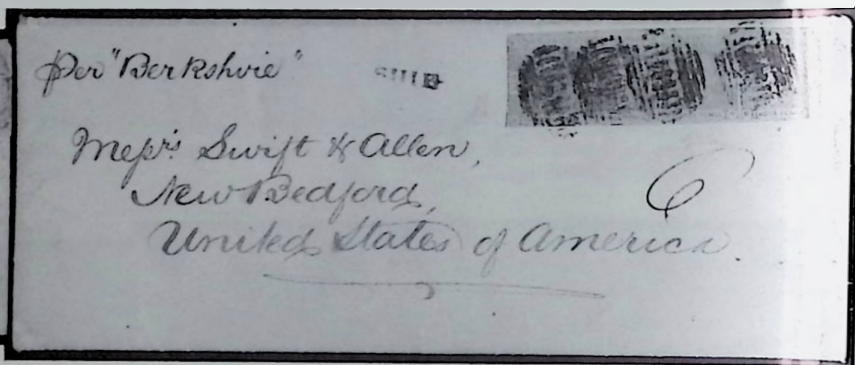 Per "Berkshire"
SHIP
Messrs Swift & Allen,
New Bedford,
6
United States of America.